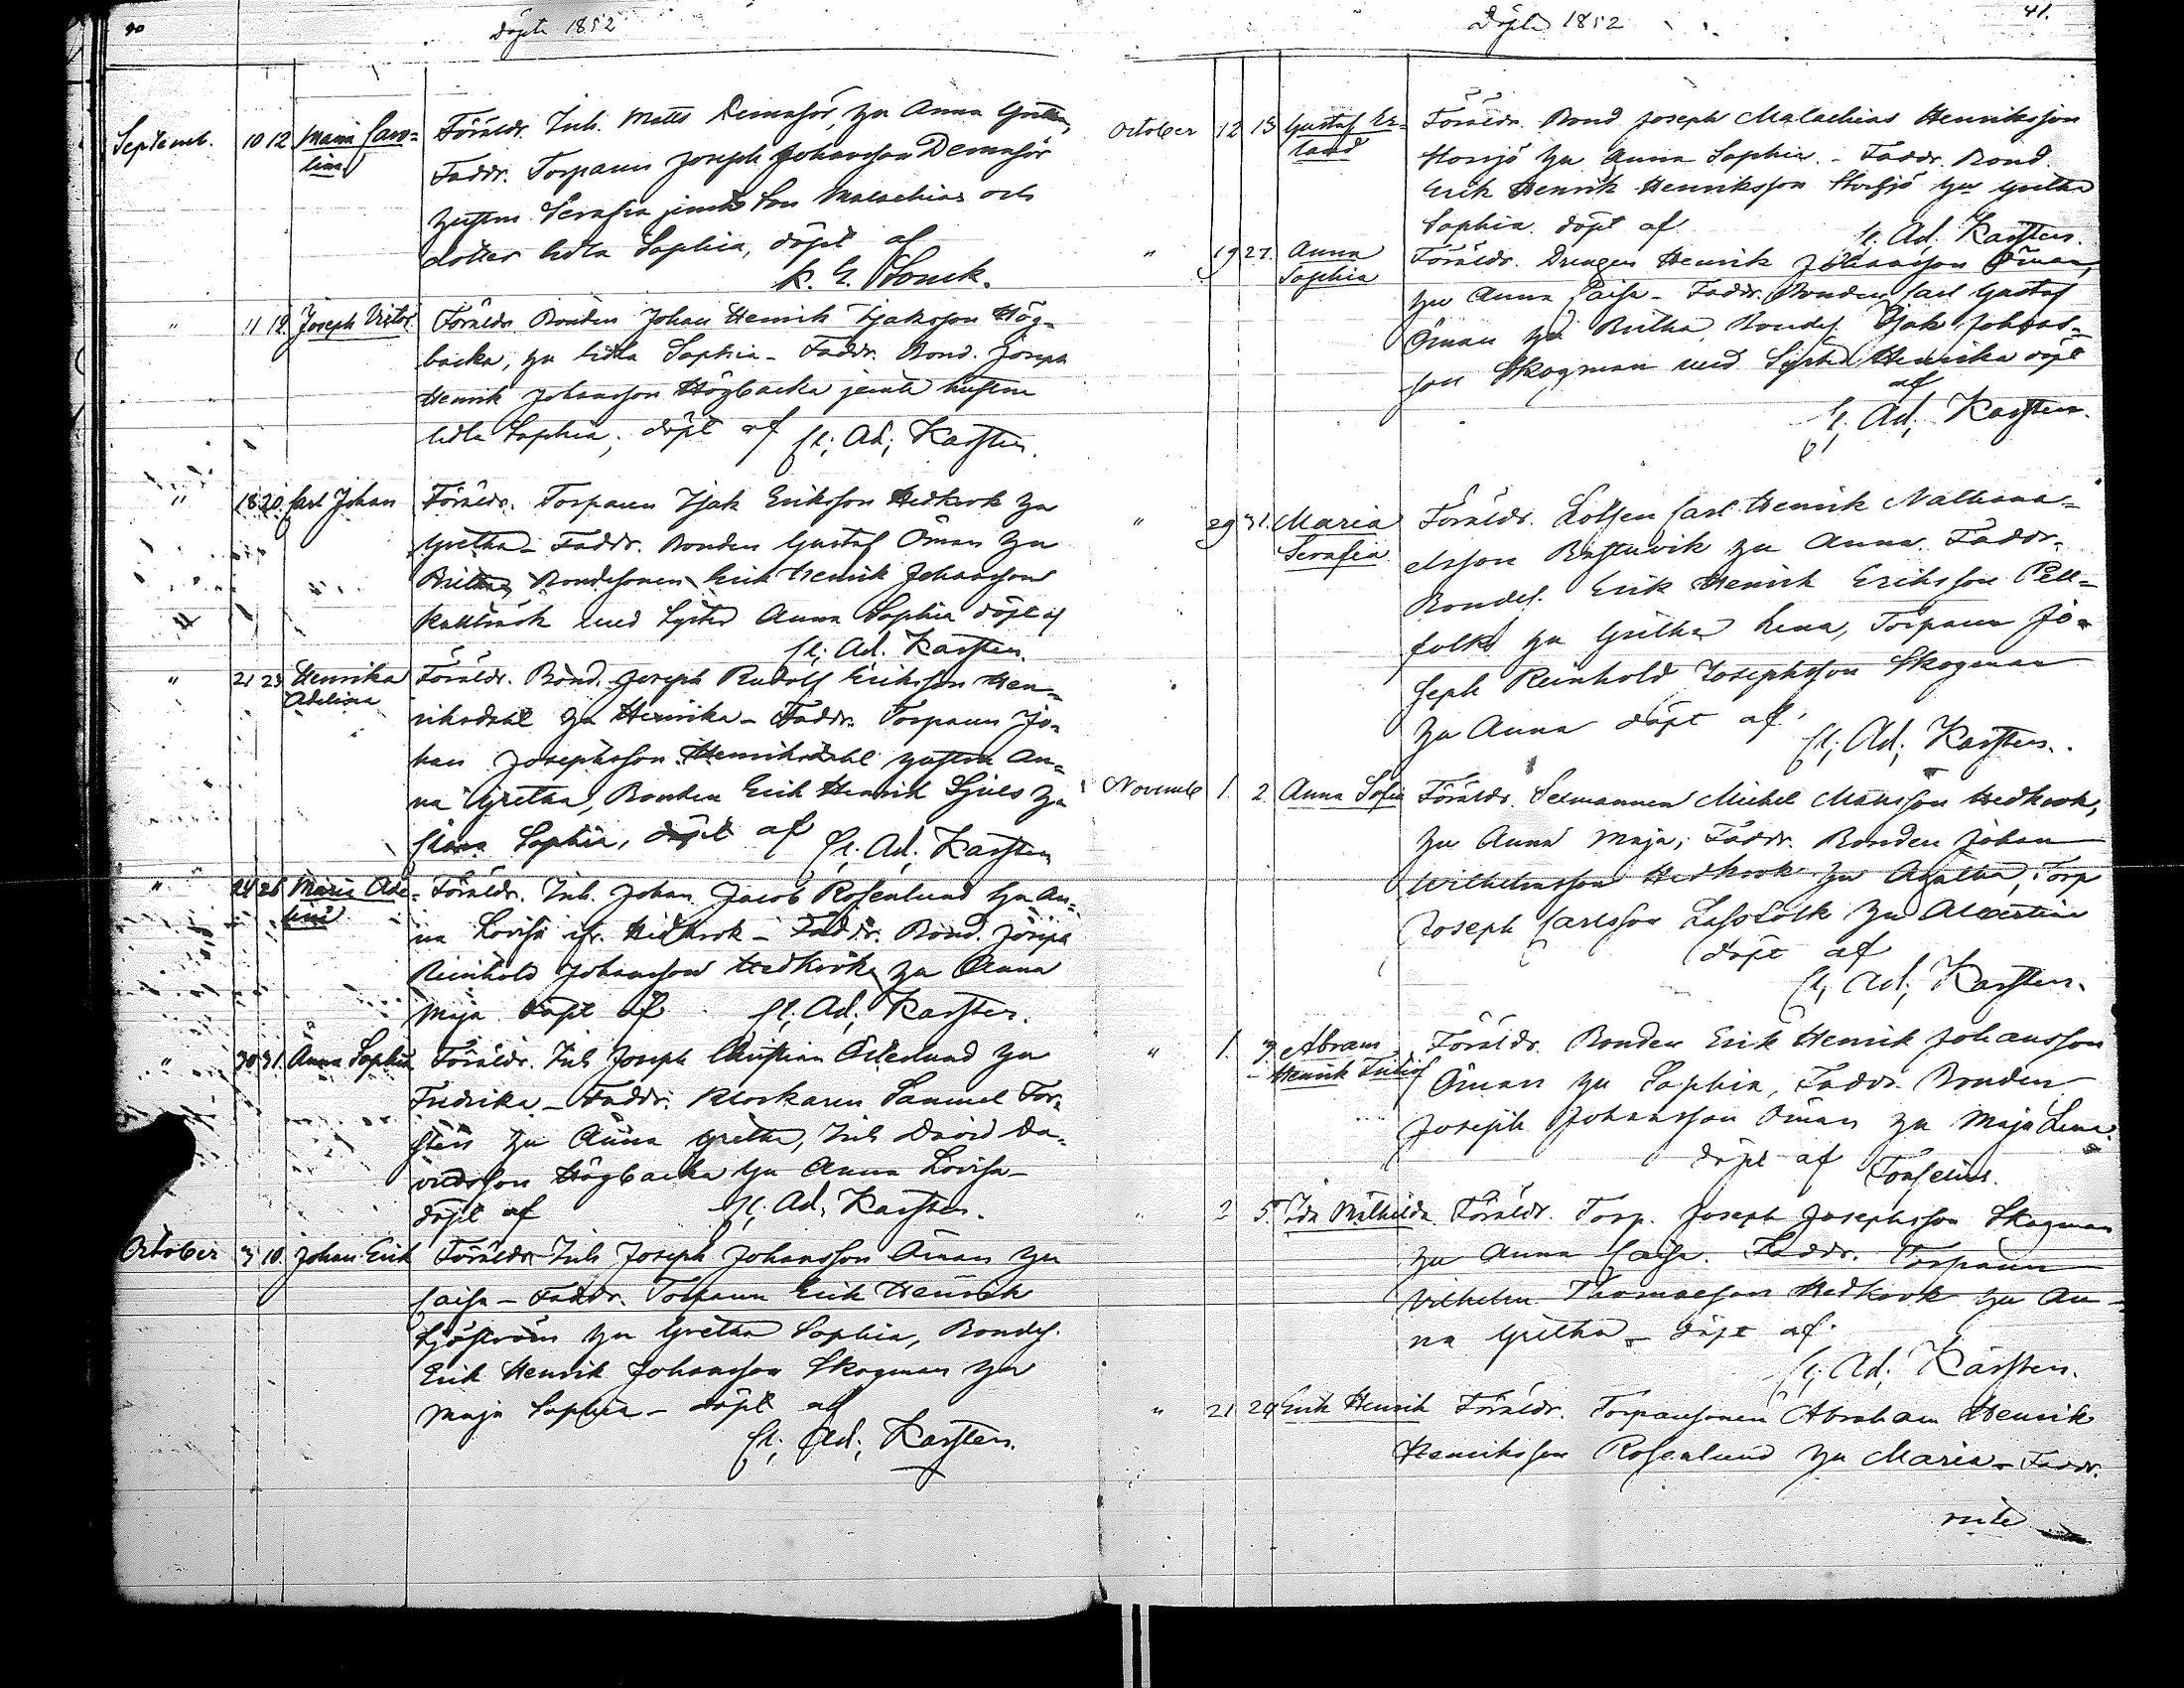 40
Döpte 1852
Septemb. 10 12 Maria Caro-
lina
Föräldr. Inh. Matts Demasör, hu Anna Greta,
Faddr. Torparen Joseph Johansson Demasör
hustrun Serafia jemte Son Malachias och
dotter Ledla Sophia, döpt af
K. E. Sonck.
" 11 12 Joseph Victor
Föräldr. Bonden Johan Henrik Isaksson Hög-
backa, hu Lidla Sophia - Faddr. Bond. Joseph
Henrik Johansson Högbacka jemte hustrun
Ledla Sophia, döpt af Cl. Ad. Karsten.
" 18 20. Carl Johan
Föräldr. Torparen Isak Eriksson Hedkrok hu
Gretha - Faddr. Bonden Gustaf Öman hu
Britha, Bondesonen Erik Henrik Johansson
med Syster Anna Sophia döpt af
Cl. Ad. Karsten.
" 21 23 Henrika
Adelina
Föräldr. Bond. Joseph Rudolf Eriksson Hen-
riksdahl hu Henrika - Faddr. Torparen Jo-
han Josephsson Henriksdahl hustru An-
na Gretha, Bonden Erik Henrik Sjuls hu
Stina Sophia, döpt af Cl. Ad. Karsten
" 24 26 Maria Ade-
lina
Föräldr. Inh. Johan Jacob Rosenlund hu An-
na Lovisa ifr. Hedkrok - Faddr. Bond. Joseph
Reinhold Johansson Hedkrok, hu Anna
Maja döpt af Cl. Ad. Karsten.
" 30 31. Anna Sophia
Föräldr. Inh Joseph Christian Österlund hu
Fredrika - Faddr. Klockaren Samuel For-
stén hu Anna Gretha, Inh David Da-
vidsson Högbacka hu Anna Lovisa -
döpt af Cl. Ad. Karsten.
October 3 10. Johan Erik
Föräldr. Inh Joseph Johansson Öman hu
Caisa - Faddr. Torparen Erik Henrik
Sjöström hu Gretha Sophia, Bondes.
Erik Henrik Johansson Skogman hu
Maja Sophia - döpt af
Cl. Ad. Karsten.
41.
Döpte 1852
October 12 13 Gustaf Er-
land
Föräldr. Bond Joseph Malachias Henriksson
Storsjö hu Anna Sophia. - Faddr. Bond.
Erik Henrik Henriksson Storsjö hu Gretha
Sophia döpt af Cl. Ad. Karsten.
" 19 27. Anna
Sophia
Föräldr. Drengen Henrik Johansson Öman,
hu Anna Caisa - Faddr. Bonden Carl Gustaf
Öman hu Britha, Bondes. Isak Johans-
son Skogman med Syster Henrika döpt
af
Cl. Ad. Karsten.
" 29 31. Maria
Serafia
Föräldr. Lotsen Carl Henrik Nathana-
elsson hu Anna. Faddr.
Bondes. Erik Henrik Eriksson Pell-
folk hu Gretha Lena, Torparen Jo-
seph Reinhold Josephsson Skogman
hu Anna döpt af
Cl. Ad. Karsten.
Novembe 1. 2. Anna Sofia
Föräldr. Michel Mansson Hedkrok,
hu Anna Maja; Faddr. Bonden Johan
Wilhelmsson Hedkrok hu Agatha, Torp
Joseph Carlsson hu Albertina
döpt af
Cl. Ad. Karsten.
" 1. 3. Abram
Henrik
Föräldr. Bonden Erik Henrik Johansson
Öman hu Sophia, Faddr. Bonden
Joseph Johansson Öman hu Maja Lena
döpt af Forselius.
" 2 5. Ida Mathilda
Föräldr. Torp. Joseph Josephsson Skogman
hu Anna Caisa. Faddr. Torparen
Vilhelm Thomasson Hedkrok hu An-
na Gretha - döpt af
Cl. Ad. Karsten.
" 21 24 Erik Henrik
Föräldr. Torparsonen Abraham Henrik
Henriksson Rosenlund hu Maria - Faddr.